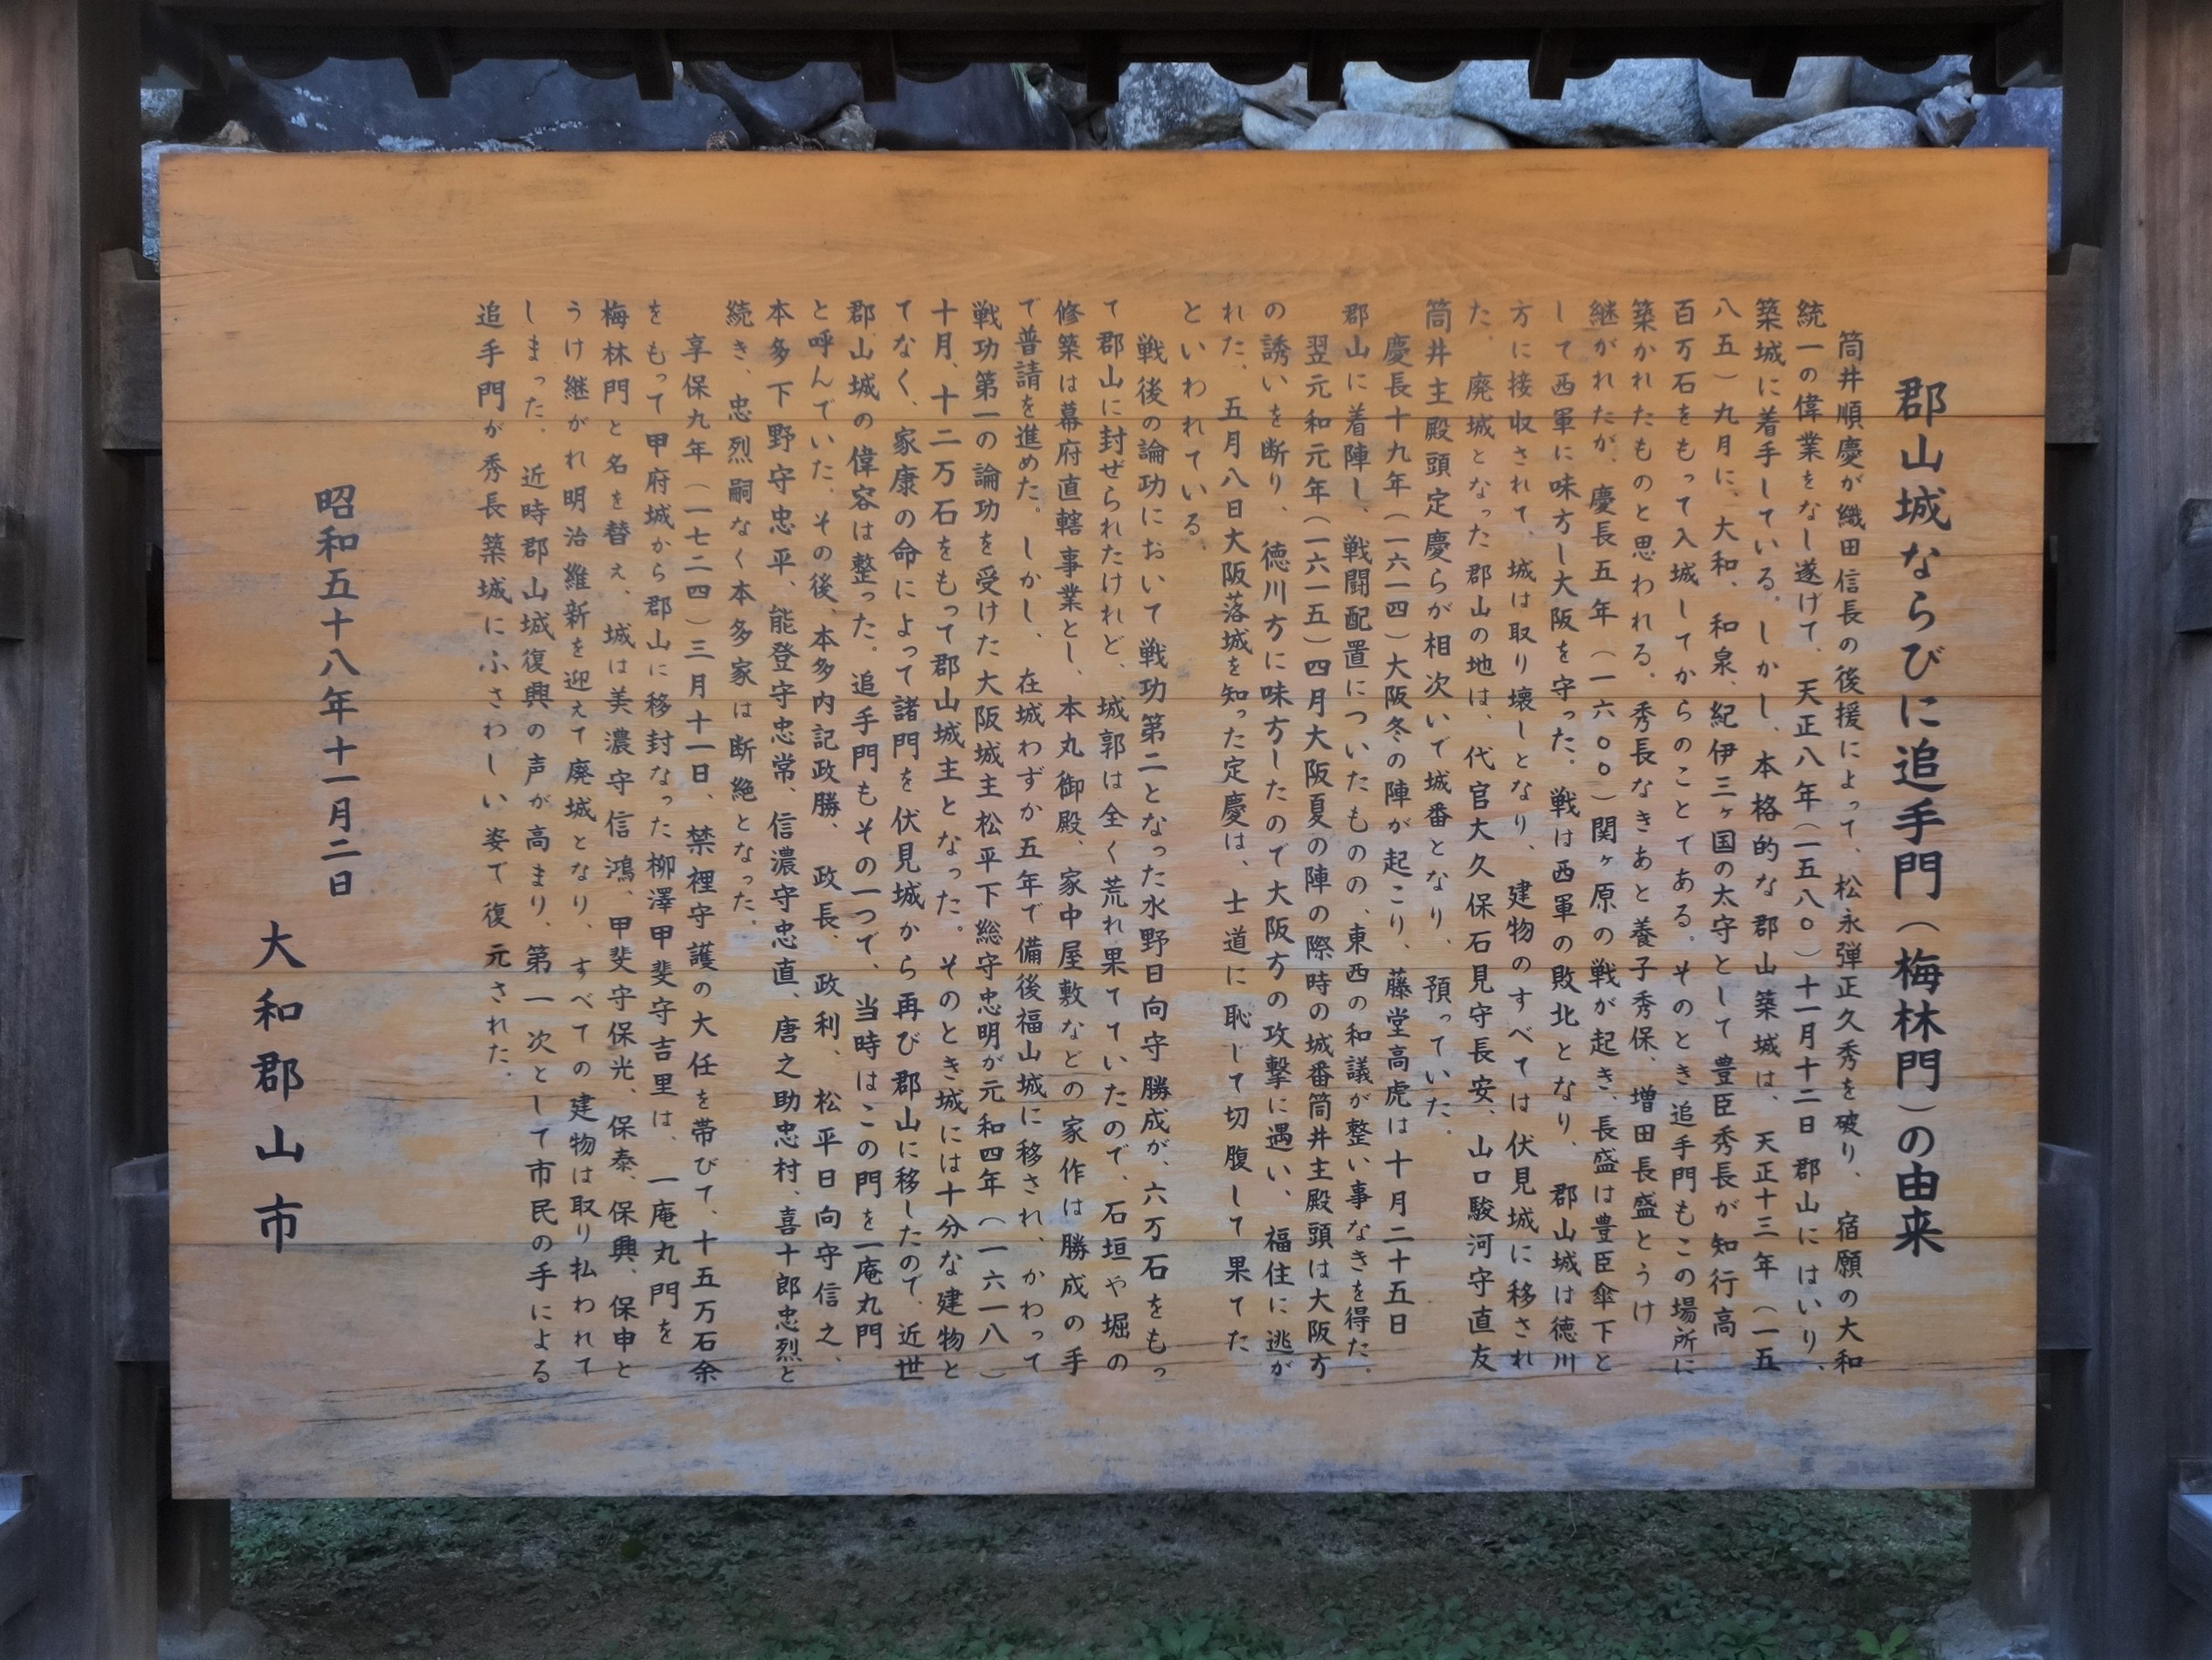 郡山城ならびに追手門（梅林門）の由来
筒井順慶が織田信長の後援によって、松永弾正久秀を破り、宿願の大和
統一の偉業をなし遂げて、天正八年（一五八〇）十一月十二日郡山にはいり、
築城に着手している。しかし、本格的な郡山築城は、天正十三年（一五
八五）九月に、大和、和泉、紀伊三ヶ国の太守として豊臣秀長が知行高
百万石をもって入城してからのことである。そのとき追手門もこの場所に
築かれたものと思われる。秀長なきあと養子秀保、増田長盛とうけ
継がれたが、慶長五年（一六〇〇）関ヶ原の戦が起き、長盛は豊臣傘下と
して西軍に味方し大阪を守った。戦は西軍の敗北となり、郡山城は徳川
方に接収されて、城は取り壊しとなり、建物のすべては伏見城に移され
た。廃城となった郡山の地は、代官大久保石見守長安、山口駿河守直友
筒井主殿頭定慶らが相次いで城番となり、預っていた。
慶長十九年（一六一四）大阪冬の陣が起こり、藤堂高虎は十月二十五日
郡山に着陣し、戦闘配置についたものの、東西の和議が整い事なきを得た。
翌元和元年（一六一五）四月大阪夏の陣の際時の城番筒井主殿頭は大阪方
の誘いを断り、徳川方に味方したので大阪方の攻撃に遇い、福住に逃が
れた。五月八日大阪落城を知った定慶は、士道に恥じて切腹して果てた
といわれている。
戦後の論功において戦功第二となった水野日向守勝成が、六万石をもっ
て郡山に封ぜられたけれど、城郭は全く荒れ果てていたので、石垣や堀の
修築は幕府直轄事業とし、本丸御殿、家中屋敷などの家作は勝成の手
で普請を進めた。しかし、在城わずか五年で備後福山城に移され、かわって
戦功第一の論功を受けた大阪城主松平下総守忠明が元和四年（一六一八）
十月、十二万石をもって郡山城主となった。そのとき城には十分な建物と
てなく、家康の命によって諸門を伏見城から再び郡山に移したので、近世
郡山城の偉容は整った。追手門もその一つで、当時はこの門を一庵丸門
と呼んでいた。その後、本多内記政勝、政長、政利、松平日向守信之、
本多下野守忠平、能登守忠常、信濃守忠直、唐之助忠村、喜十郎忠烈と
続き、忠烈嗣なく本多家は断絶となった。
享保九年（一七二四）三月十一日、禁裡守護の大任を帯びて、十五万石余
をもって甲府城から郡山に移封なった柳澤甲斐守吉里は、一庵丸門を
梅林門と名を替え、城は美濃守信鴻、甲斐守保光、保泰、保興、保申と
うけ継がれ明治維新を迎えて廃城となり、すべての建物は取り払われて
しまった。近時郡山城復興の声が高まり、第一次として市民の手による
追手門が秀長築城にふさわしい姿で復元された。
昭和五十八年十一月二日
大和郡山市